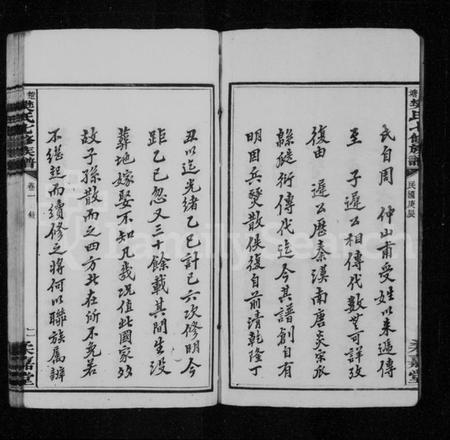 楚樊氏七修族譜
民國庚辰
光嘉堂
氏自周 仲山甫受姓以來遞傳
至 子遲公相傳代數世可詳攷
復由 遲公歷秦漢南唐炎宋瓜
綿瓞衍傳代迄今其譜創自有
明因兵燹散佚復自前清乾隆丁
丑以迄光緒乙巳計已六次修明今
距乙巳忽又三十餘載其間生沒
葬地嫁娶不知凡幾況值此國家多
故子孫散而之四方比在所不免若
不繼起而續修之將何以聯族屬辨
樊氏七修族譜
卷一
一
光嘉堂
FamilySearch